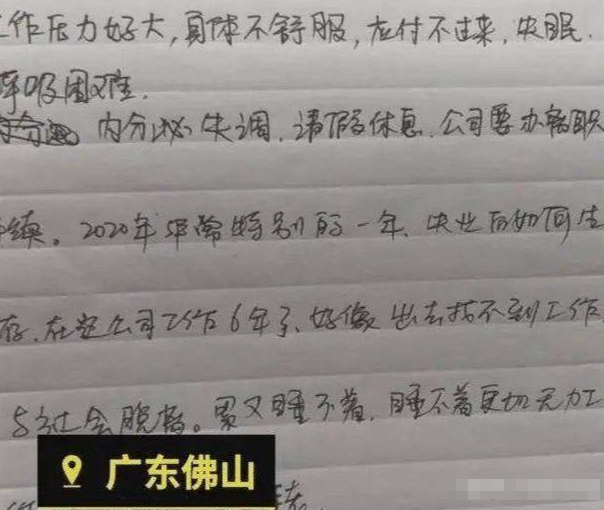 工作压力好大,身体不舒服,应付不过来,失眠.
呼吸困难.
内分泌失调.请假休息.公司要办离职
手续。2020年非常特别的一年.失业后如何生
存.在这公司工作6年了、好像出去找不到工作.
与社会脱轨。累又睡不着.睡不着更加无力工
广东佛山